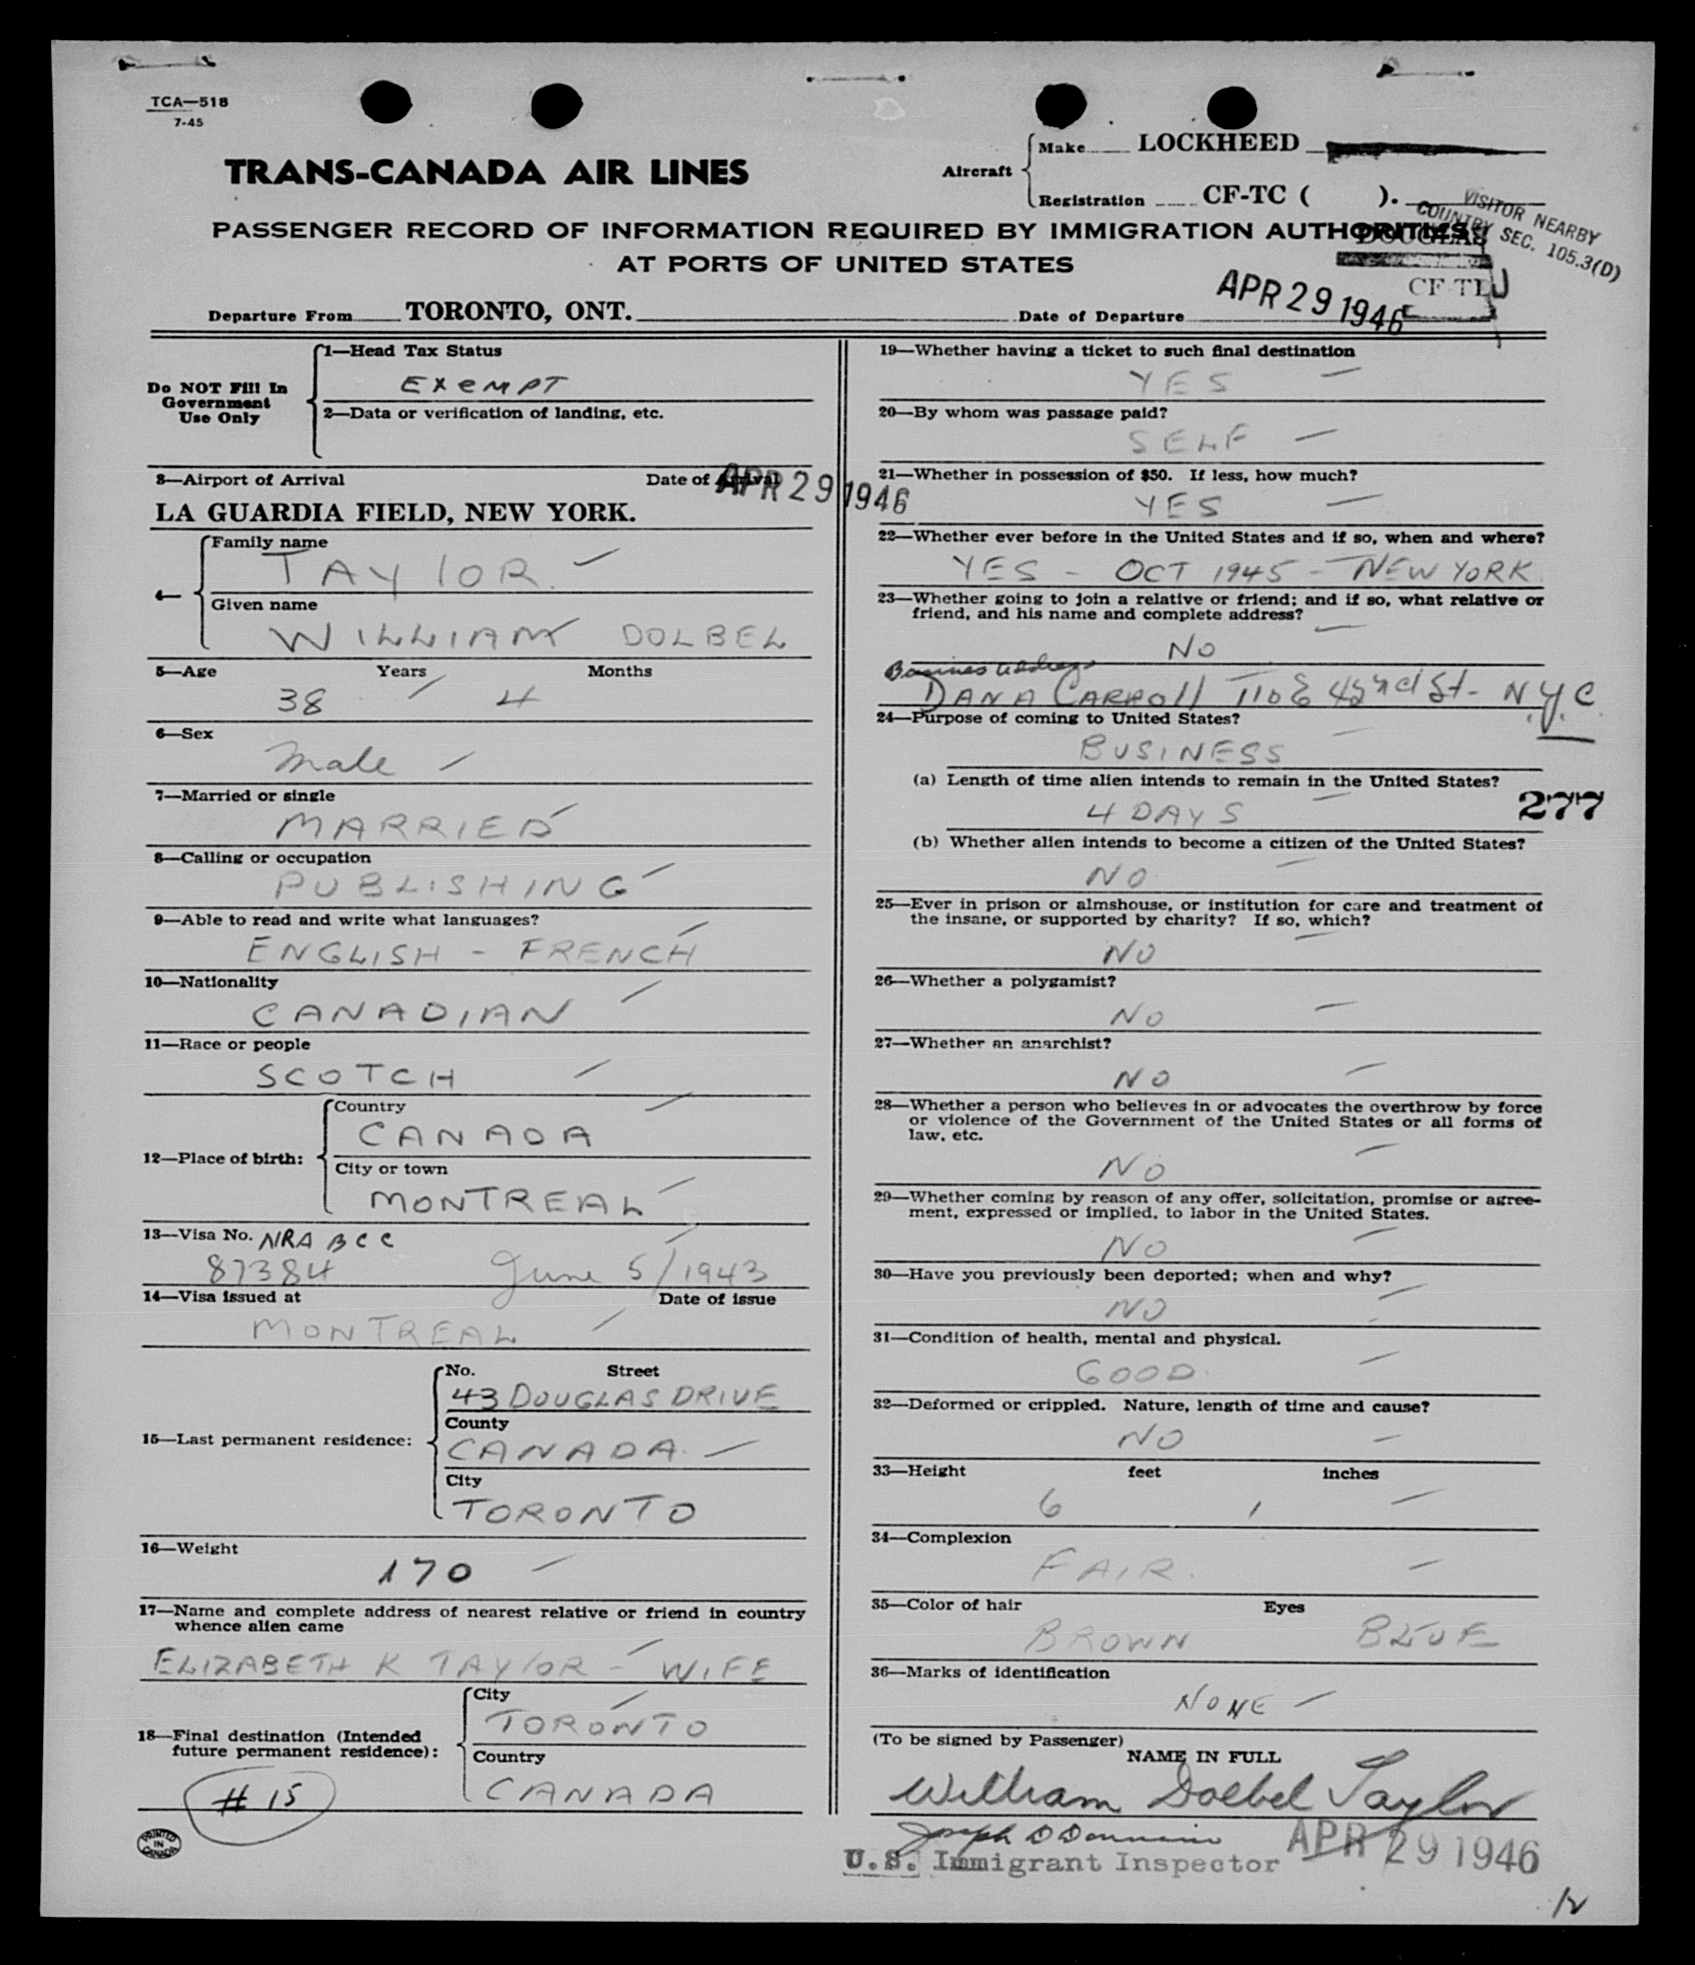 TCA—518
7-45
TRANS-CANADA AIR LINES
Aircraft
Make LOCKHEED
Registration CF-TC ( ).
VISITOR NEARBY
COUNTRY SEC. 105.3(D)
PASSENGER RECORD OF INFORMATION REQUIRED BY IMMIGRATION AUTHORITIES
DOUGLAS
AT PORTS OF UNITED STATES
CF-TL
Departure From TORONTO, ONT. Date of Departure APR 29 1946
Do NOT Fill In
Government
Use Only
1—Head Tax Status
EXEMPT
2—Data or verification of landing, etc.
3—Airport of Arrival Date of Arrival APR 29 1946
LA GUARDIA FIELD, NEW YORK.
4—
Family name
TAYLOR
Given name
WILLIAM DOLBEL
5—Age Years Months
38 4
6—Sex
Male
7—Married or single
MARRIED
8—Calling or occupation
PUBLISHING
9—Able to read and write what languages?
ENGLISH - FRENCH
10—Nationality
CANADIAN
11—Race or people
SCOTCH
12—Place of birth:
Country
CANADA
City or town
MONTREAL
13—Visa No. NRA BCC
87384 June 5/1943
14—Visa issued at Date of issue
MONTREAL
15—Last permanent residence:
No. Street
43 DOUGLAS DRIVE
County
CANADA
City
TORONTO
16—Weight
170
17—Name and complete address of nearest relative or friend in country
whence alien came
ELIZABETH K TAYLOR - WIFE
18—Final destination (Intended
future permanent residence):
City
TORONTO
Country
CANADA
# 15
PRINTED
IN
CANADA
19—Whether having a ticket to such final destination
YES
20—By whom was passage paid?
SELF
21—Whether in possession of $50. If less, how much?
YES
22—Whether ever before in the United States and if so, when and where?
YES - OCT 1945 - NEW YORK
23—Whether going to join a relative or friend; and if so, what relative or
friend, and his name and complete address?
NO
Business address
DANA CARROLL 110 E 42nd St- N.Y.C
24—Purpose of coming to United States?
BUSINESS
(a) Length of time alien intends to remain in the United States?
4 DAYS
277
(b) Whether alien intends to become a citizen of the United States?
NO
25—Ever in prison or almshouse, or institution for care and treatment of
the insane, or supported by charity? If so, which?
NO
26—Whether a polygamist?
NO
27—Whether an anarchist?
NO
28—Whether a person who believes in or advocates the overthrow by force
or violence of the Government of the United States or all forms of
law, etc.
NO
29—Whether coming by reason of any offer, solicitation, promise or agree-
ment, expressed or implied, to labor in the United States.
NO
30—Have you previously been deported; when and why?
NO
31—Condition of health, mental and physical.
GOOD
32—Deformed or crippled. Nature, length of time and cause?
NO
33—Height feet inches
6 1
34—Complexion
FAIR
35—Color of hair Eyes
BROWN BLUE
36—Marks of identification
NONE
(To be signed by Passenger)
NAME IN FULL
William Dolbel Taylor
Joseph D
U.S. Immigrant Inspector APR 29 1946